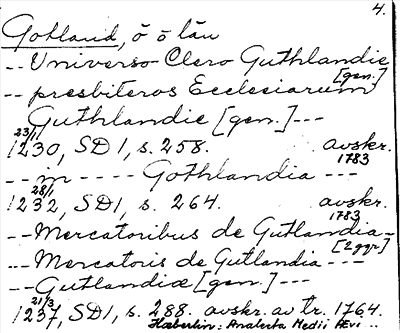 4.
Gotland, ö o län
-- Universo Clero Guthlandie
[gen.]
-- presbiteros Ecclesiarum
Guthlandie [gen.] ---
23/1
1230, SD 1, s. 258. avskr.
1783
-- in ---- Gothlandia ---
28/1
1232, SD 1, s. 264. avskr.
1783
-- Mercatoribus de Gutlandia -
[2 ggr]
--- Mercatoris de Gutlandia ---
-- Gutlandiæ [gen.] ---
21/3
1237, SD 1, s. 288. avskr. av tr. 1764.
Hæberlin: Analecta Medii AEvi ..